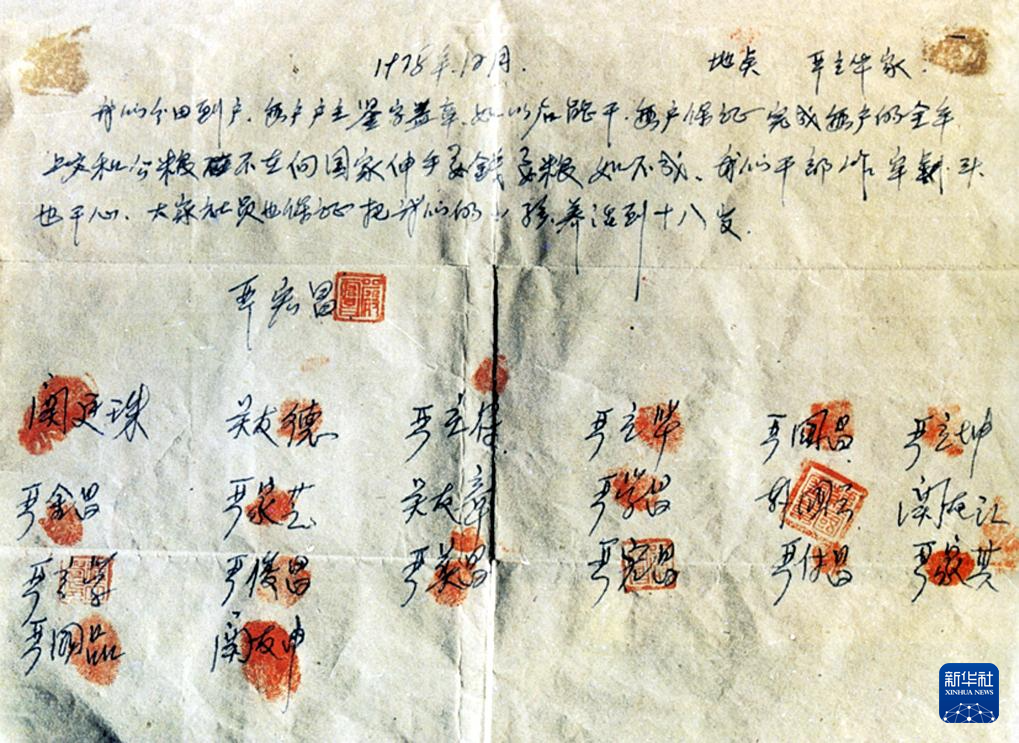 1978年12月. 地点 严立华家.
我们分田到户.每户户主签字盖章.如以后能干.每户保证完成每户的全年
上交和公粮不在向国家伸手要钱要粮如不成.我们干部作牢杀头
也干心.大家社员也保证把我们的小孩养活到十八岁.
严宏昌
关廷珠 关友德 严立符 严立华 严国昌 严立坤
严金昌 严家芝 关友章 严学昌 韩国云 关友江
严立学 严俊昌 严美昌 严宏昌 严付昌 严家其
严国品 关友申
新华社
XINHUA NEWS